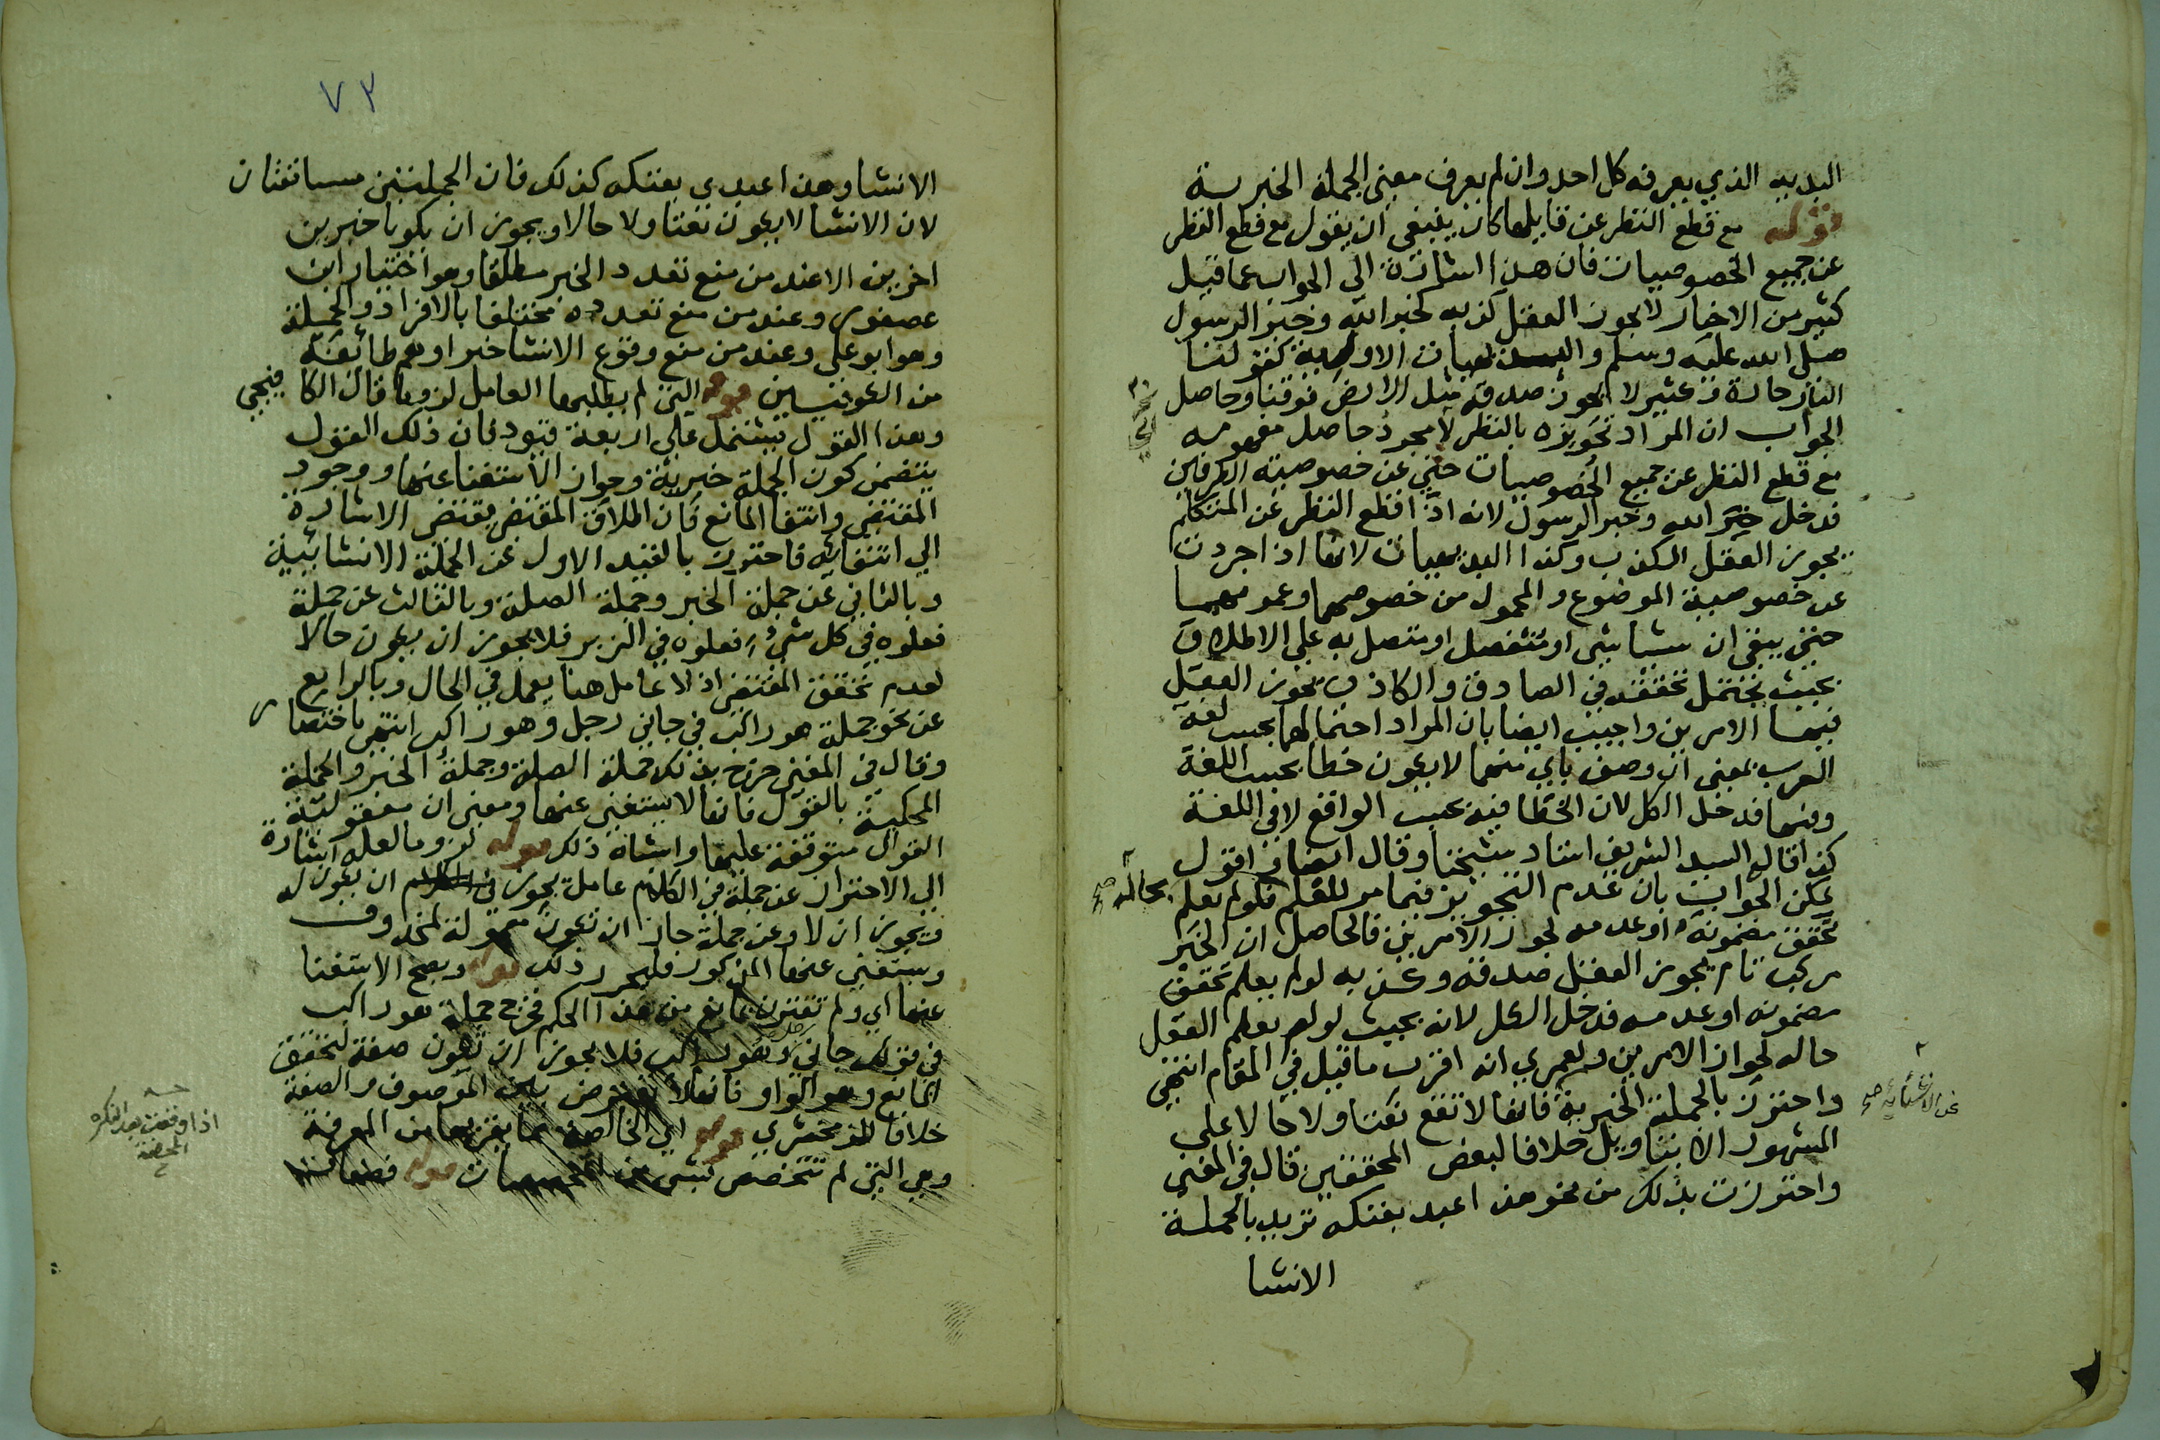 البديه الذي يعرفه كل احد وان لم يعرف معنى الجملة الخبرية
قوله مع قطع النظر عن قايلها كان ينبغي ان يقول مع قطع النظر
عن جميع الخصوصيات فان هذا اشارة الي الجواب عما قيل
كثير من الاخبار لا يجوز العقل كذبه كخبر الله وخبر الرسول
صلى الله عليه وسلم والبديهيات الاولية كقولنا
النار حارة وكثير لا يجوز صدقه مثل الارض فوقنا وحاصل
الجواب ان المراد تجويزه بالنظر لمجرد حاصل مفهومه
مع قطع النظر عن جميع الخصوصيات حتي عن خصوصية الطرفين
فدخل خبر الله وخبر الرسول لانه اذا قطع النظر عن المتكلم
يجوز العقل الكذب وكذا البديهيات لانها اذا جردت
عن خصوصية الموضوع والمحمول من خصوصهما وعمومهما
حتي يبقي ان شيا شي او منفصل او متصل به علي الاطلاق
بحيث يحتمل تحققه في الصادق والكاذب يجوز العقل
فيها الامرين واجيب ايضا بان المراد احتمالها بحسب لغة
العرب بمعنى ان وصف باي منهما لا يكون خطا بحسب اللغة
ومنها فدخل الكل لان الخطا فيه بحسب الواقع لا في اللغة
كذا قال السيد الشريف استاد شيخنا وقال ايضا اقول
يمكن الجواب بان عدم التجويز فيما مر للعلم فلو لم يعلم بحاله صح
تحقق مضمونه او عدمه لجوز الامرين فالحاصل ان الخبر
مركب تام يجوز العقل صدقه وكذبه لو لم يعلم تحقق
مضمونه او عدمه فدخل الكل لانه بحيث لو لم يعلم العقل
حاله لجواز الامرين ولعمري انه اقرب ما قيل في المقام انتهي
واحترز بالجملة الخبرية فانها لا تقع نعتا ولا حالا علي
عن الانشائية صح
المشهور الا بتاويل خلافا لبعض المحققين قال في المغني
واحترزت بذلك من نحو هذا عبد بعتكه تريد بالجملة
الانشا
٧٢
الانشا وهذا عبدي بعتكه كذلك فان الجملتين مستانفتان
لان الانشا لا يكون نعتا ولا حالا ويجوز ان يكونا خبرين
اخرين الا عند من منع تعدد الخبر مطلقا وهو اختيار ابن
عصفور وعند من منع تعدده مختلفا بالافراد والجملة
وهو ابو علي وعند من منع وقوع الانشا خبرا وهم طائفة
من الكوفيين قوله التي لم يطلبها العامل لزوما قال الكافيجي
وهذا القول يشتمل علي اربعة قيود فان ذلك القول
يتضمن كون الجملة خبرية وجواز الاستغنا عنها ووجود
المقتضي وانتفا المانع فان اطلاق المقتضي يقتضي الاشارة
الي انتفائه فاحترز بالقيد الاول عن الجملة الانشائية
وبالثاني عن جملة الخبر وجملة الصلة وبالثالث عن جملة
فعلوه في كل شيء فعلوه في الزبر فلا يجوز ان يكون حالا
لعدم تحقق المقتضي اذ لا عامل هنا يعمل في الحال وبالرابع
عن نحو جملة هو راكب في جاني رجل وهو راكب انتهي باختصار
وقال في المغني خرج بذلك جملة الصلة وجملة الخبر والجملة
المحكية بالقول فانها لا يستغنى عنها ومعنى ان معقولية
القول متوقفة عليها واشباه ذلك قوله لزوما لعله اشارة
الي الاحتراز عن جملة في الكلام عاملة يجوز ان يكون له
ويجوز ان لا وعن جملة جاز ان تكون معمولة لمحذوف
ويستغني عنها المذكور فليحرر ذلك قوله ويصح الاستغنا
عنها اي ولم تقترن بمانع من هذا الحكم فخرج جملة هو راكب
في قولك جاني رجل وهو راكب فلا يجوز ان تكون صفة لتحقق
المانع وهو الواو فانها لا تعترض بين الموصوف والصفة
خلافا للزمخشري قوله اي الخالصة مما يقربها من المعرفة
اذا وقعت بعد النكرة المحضة
وهي التي لم تتخصص بشي من المخصصات قوله فصفات